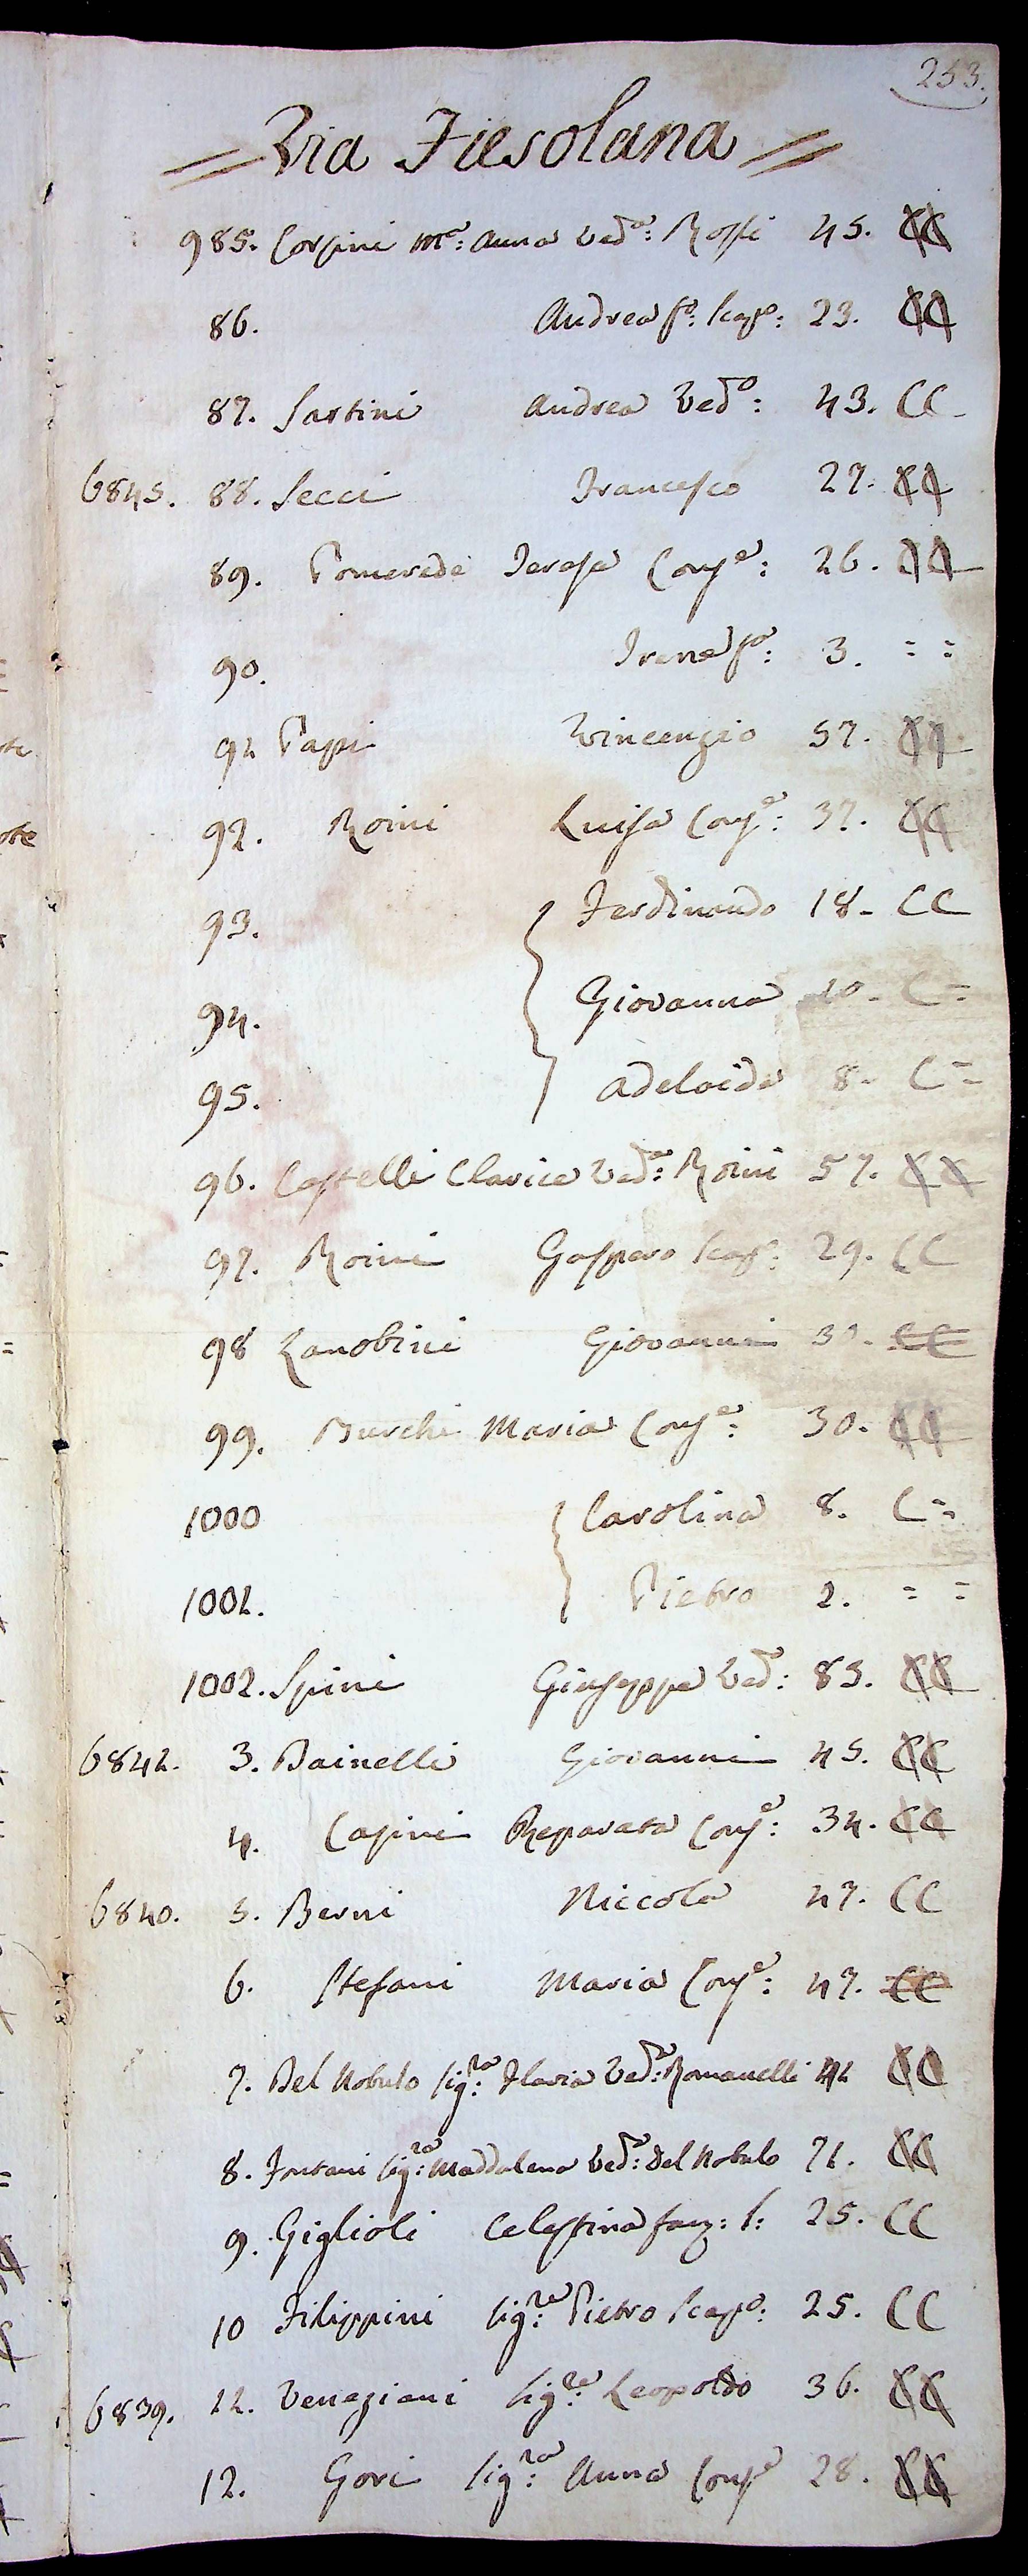 253.
= Via Fiesolana =
985. Corsini M.a: Anna Ved.a: Rossi 45. CC
86. Andrea f.o: Scap.o: 23. CC
87. Sartini Andrea Ved.o: 43. CC
6845. 88. Secci Francesco 27. CC
89. Pomeradè Teresa Cong.e: 26. CC
90. Irene f.a: 3. = =
91 Papi Vincenzio 57. CC
92. Roini Luisa Cong.e: 37. CC
93. Ferdinando 18. CC
94. Giovanna 10. C =
95. Adelaide 8. C =
96. Castelli Clarice Ved.a: Roini 57. CC
97. Roini Gaspero Scap.o: 29. CC
98 Zanobini Giovanni CC
99. Burchi Maria Cong.e: 30. CC
1000 Carolina 8. C =
1001. Pietro 2. = =
1002. Spini Giuseppa Ved.a: 83. CC
6841. 3. Bainelli Giovanni 45. CC
4. Capini Reparata Cong.e: 34. CC
6840. 5. Berni Niccola 47. CC
6. Stefani Maria Cong.e: 47. CC
7. Del Nobulo Sig.ra: Flavia Ved.a: Romanelli 41 CC
8. Fontani Sig.ra: Maddalena Ved.a: Del Nobulo 71. CC
9. Giglioli Celestina fanz: S: 25. CC
10 Filippini Sig.re: Pietro Scap.o: 25. CC
6839. 11. Veneziani Sig.re: Leopoldo 36. CC
12. Gori Sig.ra: Anna Cong.e 28. CC